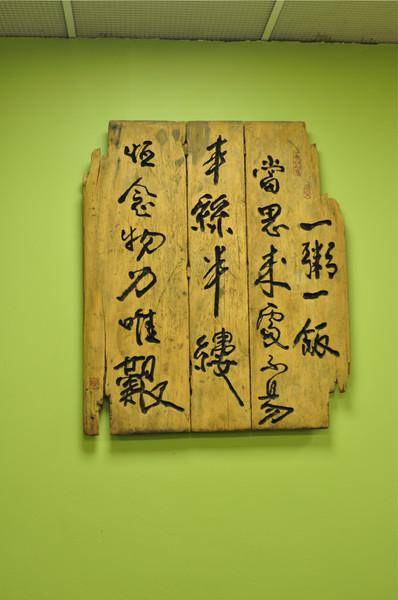 一粥一飯
當思来處不易
半絲半縷
恒念物力唯艱